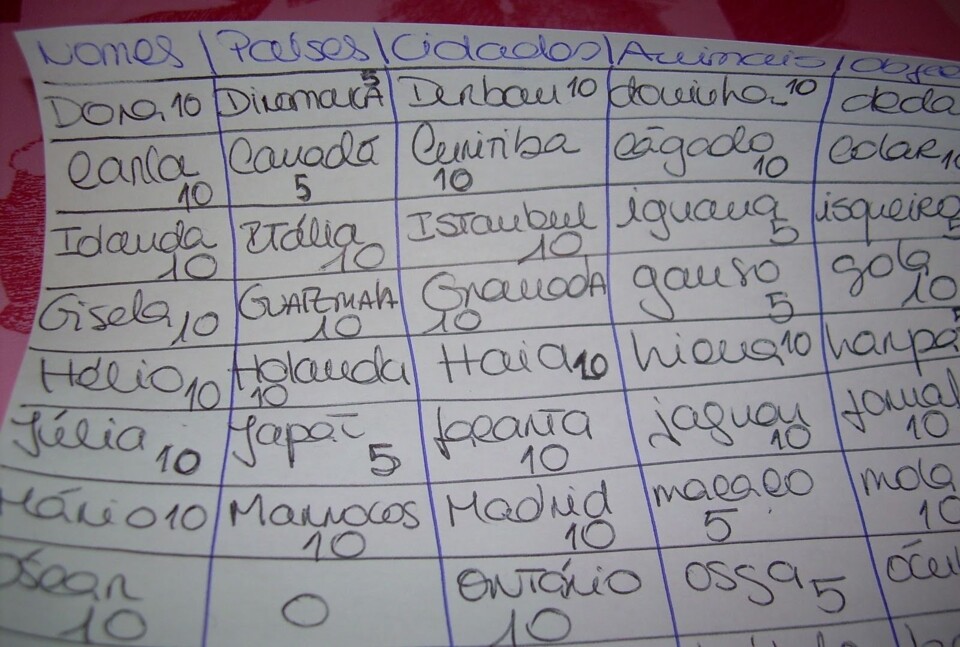 Nomes | Países | Cidades | Animais | Obje
Dora 10 Dinamarca 5 Denban 10 doninha 10 deda
Carla 10 Canadá 5 Curitiba 10 cágado 10 colar 10
Iolanda 10 Itália 10 Istanbul 10 iguana 5 isqueiro 5
Gisela 10 Guatemala 10 Granada 10 ganso 5 gola 10
Hélio 10 Holanda 10 Haia 10 hiena 10 harpa 5
Júlia 10 Japão 5 Jacarta 10 jaguar 10 jornal 10
Mário 10 Marrocos 10 Madrid 10 macaco 5 mola 10
Óscar 10 0 Ontário 10 ossga 5 ócul